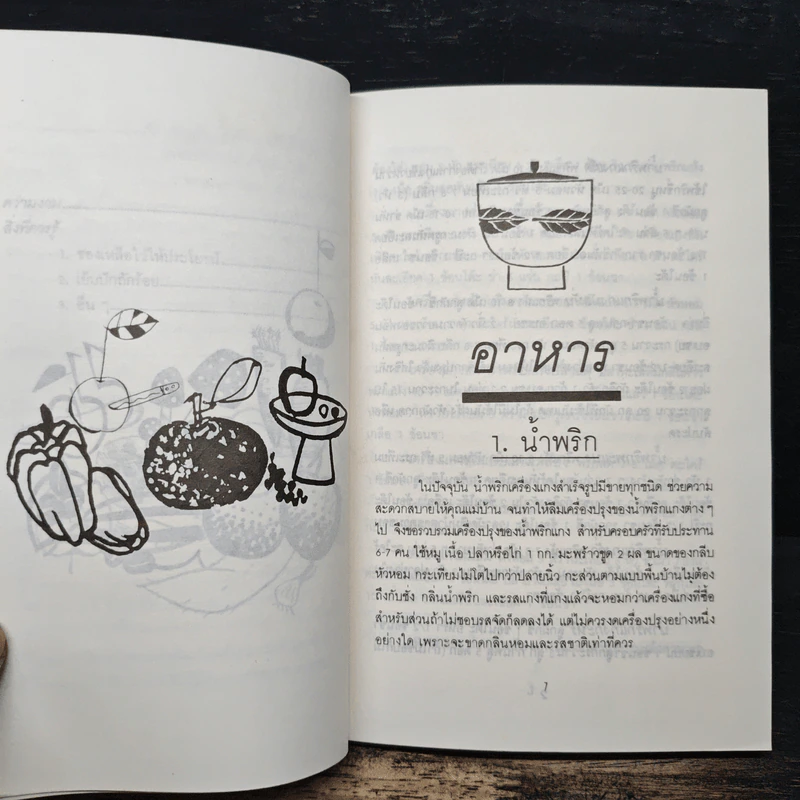 อาหาร
1. น้ำพริก
ในปัจจุบัน น้ำพริกเครื่องแกงสำเร็จรูปมีขายทุกชนิด ช่วยความ
สะดวกสบายให้คุณแม่บ้าน จนทำให้ลืมเครื่องปรุงของน้ำพริกแกงต่าง ๆ
ไป จึงขอรวบรวมเครื่องปรุงของน้ำพริกแกง สำหรับครอบครัวที่รับประทาน
6-7 คน ใช้หมู เนื้อ ปลาหรือไก่ 1 กก. มะพร้าวขูด 2 ผล ขนาดของกลีบ
หัวหอม กระเทียมไม่โตไปกว่าปลายนิ้ว กะส่วนตามแบบพื้นบ้านไม่ต้อง
ถึงกับชั่ง กลิ่นน้ำพริก และรสแกงที่แกงแล้วจะหอมกว่าเครื่องแกงที่ซื้อ
สำหรับส่วนถ้าไม่ชอบรสจัดก็ลดลงได้ แต่ไม่ควรงดเครื่องปรุงอย่างหนึ่ง
อย่างใด เพราะจะขาดกลิ่นหอมและรสชาติเท่าที่ควร
1